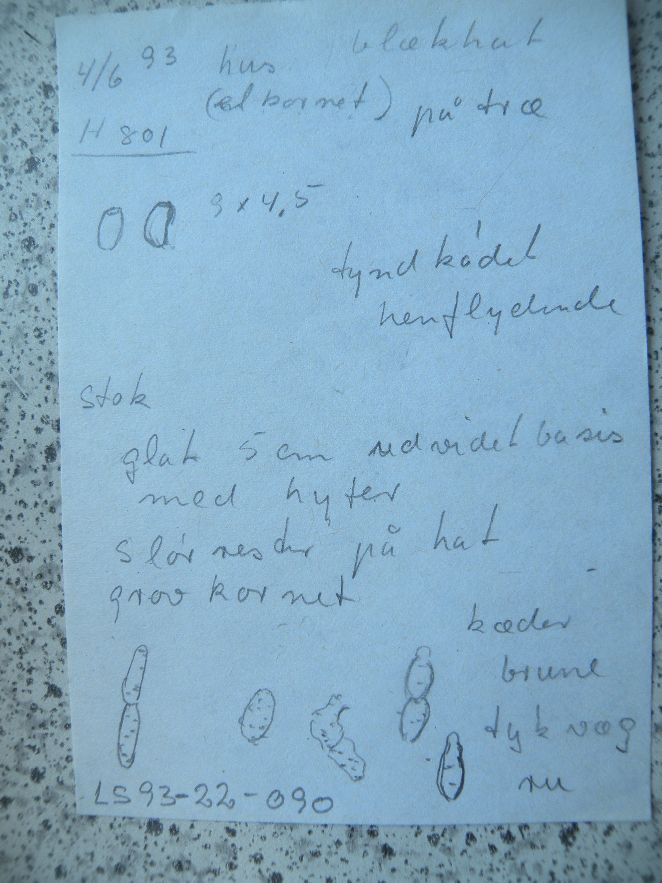 4/6 93 hus blækhat
(el kornet) på træ
H 801
9 x 4,5
tyndkødet
henflydende
stok
glat 5 cm udvidet basis
med hyfer
slør rester på hat
grov kornet
kæder
brune
tyk væg
ru
LS93-22-090